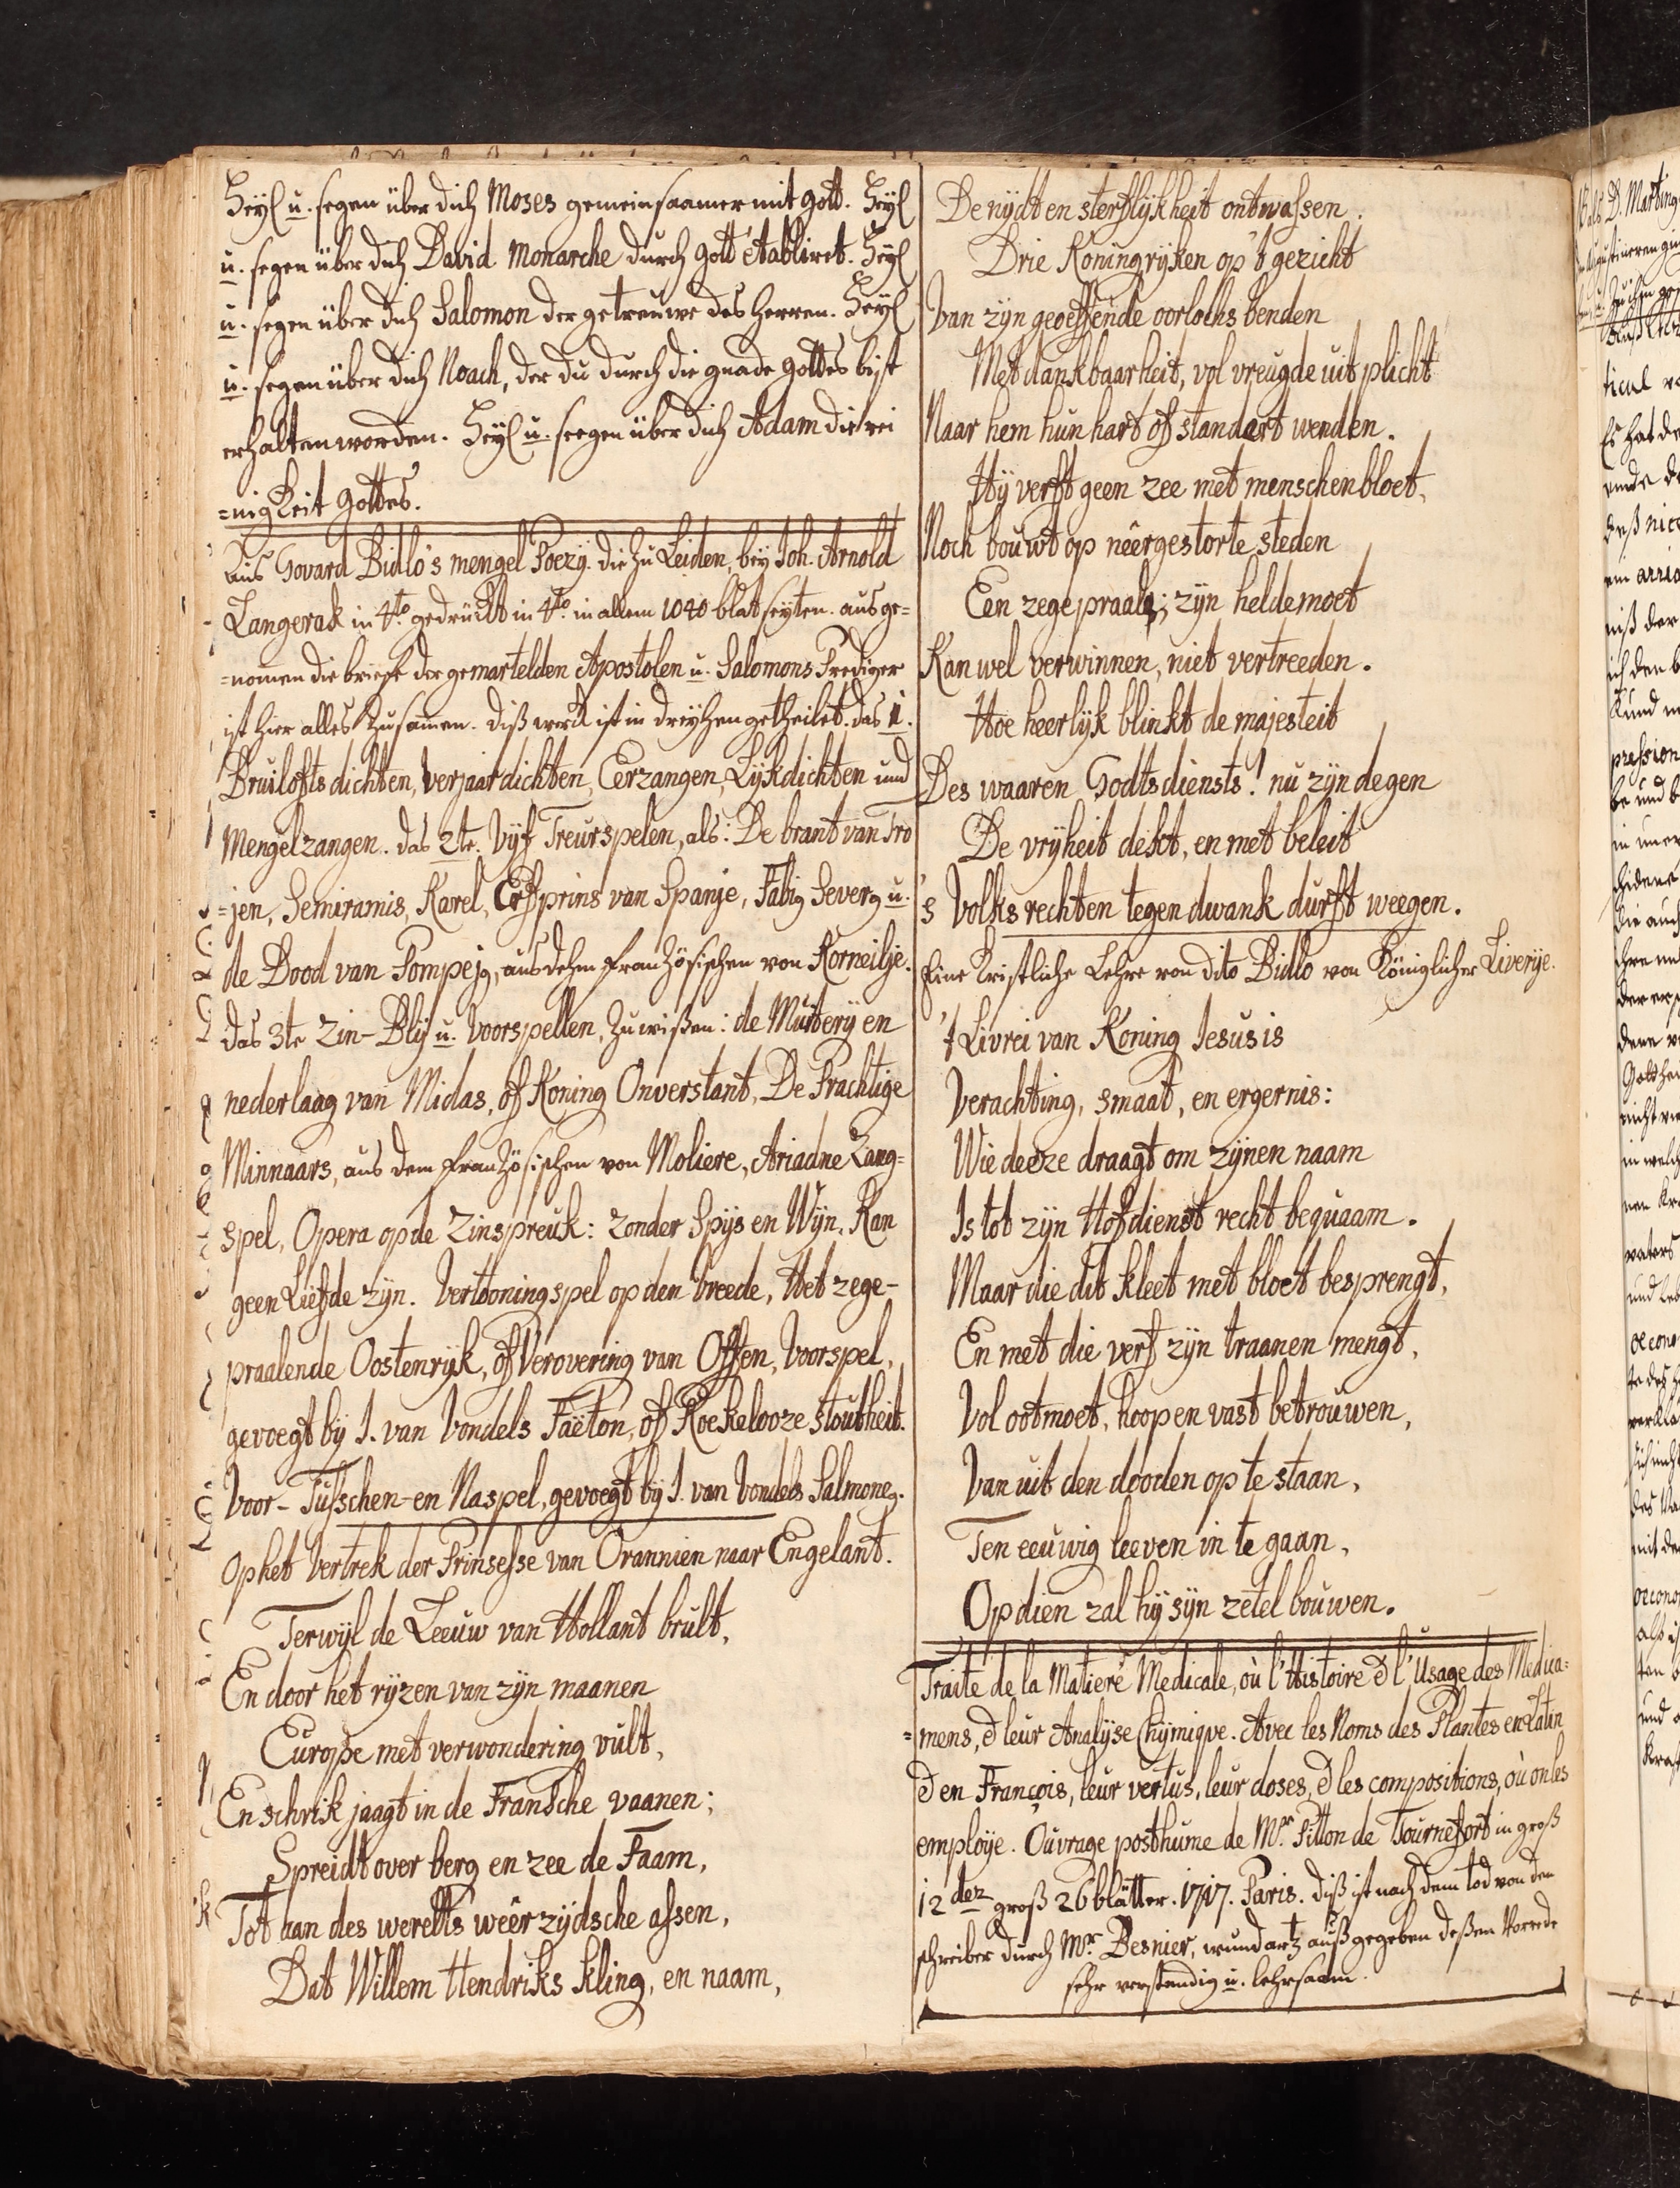 Heyl u. segen über dich Moses gemeinsaamer mit Gott. Heyl
u. segen über dich David Monarche durch Gott établiret. Heyl
u. segen über dich Salomon der getreuwe des Herren. Heyl
u. segen über dich Noach, der du durch die gnade Gottes bist
erhalten worden. Heyl u. seegen über dich Adam die rei
=nigkeit Gottes.
Aus Govard Bidlo's mengel Poëzy. die zu Leiden, bey Joh. Arnold
Langerak in 4to. gedruckt in 4to. in allem 1040 blatseyten. ausge=
=nomen die briefe der gemartelden Apostolen u. Salomons Prediger
ist hier alles zusamen. Diß werck ist in dreyen getheilet. das 1.
Bruilofts dichten, Verjaardichten, Eerzangen, Lykdichten und
Mengelzangen. das 2te. Vyf Treurspelen, als: De brant van Tro
=jen, Semiramis, Karel, Erfprins van Spanje, Fabig Severg u.
de Dood van Pompejg, aus dehm Französischen von Korneilje.
das 3te Zin-Blij u. Voorspellen, zu wißen: de Muitery en
nederlaag van Midas, of Koning Onverstant, De Prachtige
Minnaars, aus dem Französischen von Moliere, Ariadne Zang=
spel, Opera op de Zinspreuk: zonder Spys en Wyn, Kan
geen Liefde zyn. Vertooningspel op den Vreede, Het zege-
praalende Oostenryk, of Verovering van Offen, Voorspel,
gevoegt by J. van Vondels Faëton, of Roekelooze stoutheit.
Voor-Tusschen-en Naspel, gevoegt by J. van Vondels Salmoneg.
Op het Vertrek der Prinsesse van Orannien naar Engelant.
Terwyl de Leeuw van Hollant brult,
En door het ryzen van zyn maanen
Europe met verwondering vult,
En schrik jaagt in de Fransche vaanen;
Spreidt over berg en zee de Faam,
Tot aan des werelts weêrzydsche assen,
Dat Willem Hendriks kling, en naam,
De nydt en sterflykheit ontwassen.
Drie Koningryken op 't gezicht
Van zyn geoeffende oorlochs benden
Met dankbaarheit, vol vreugde uit plicht
Naar hem hun hart of standert wenden.
Hy verft geen zee met menschenbloet,
Noch bouwt op neêrgestorte steden
Een zegepraal; zyn heldemoet
Kan wel verwinnen, niet vertreeden.
Hoe heerlyk blinkt de majesteit
Des waaren Godtsdiensts! nu zyn degen
De vryheit dekt, en met beleit
's Volks rechten tegen dwank durft weegen.
Eine Cristliche Lehre von dito Bidlo von Königlicher Liverije.
't Livrei van Koning Jesus is
Verachting, smaat, en ergernis:
Wie deeze draagt om zynen naam
Is tot zyn Hofdienst recht bequaam.
Maar die dit kleet met bloet besprengt,
En met die verf zyn traanen mengt,
Vol ootmoet, hoop en vast betrouwen,
Van uit den dooden op te staan,
Ten eeuwig leeven in te gaan,
Op dien zal hy syn zetel bouwen.
Traité de la Matiere Medicale, où l'Histoire & l'Usage des Medica=
=mens, & leur Analyse Chymique. Avec les Noms des Plantes en Latin
& en François, leur vertus, leur doses, & les compositions, où on les
employe. Ouvrage posthume de Mr. Pitton de Tournefort in groß
12 dez groß 26 blätter. 1717. Paris. Diß ist nach dem tod von dem
schreiber durch Mr. Besnier, wundartz außgegeben deßen Vorrede
sehr verstandig u. lehrsaam.